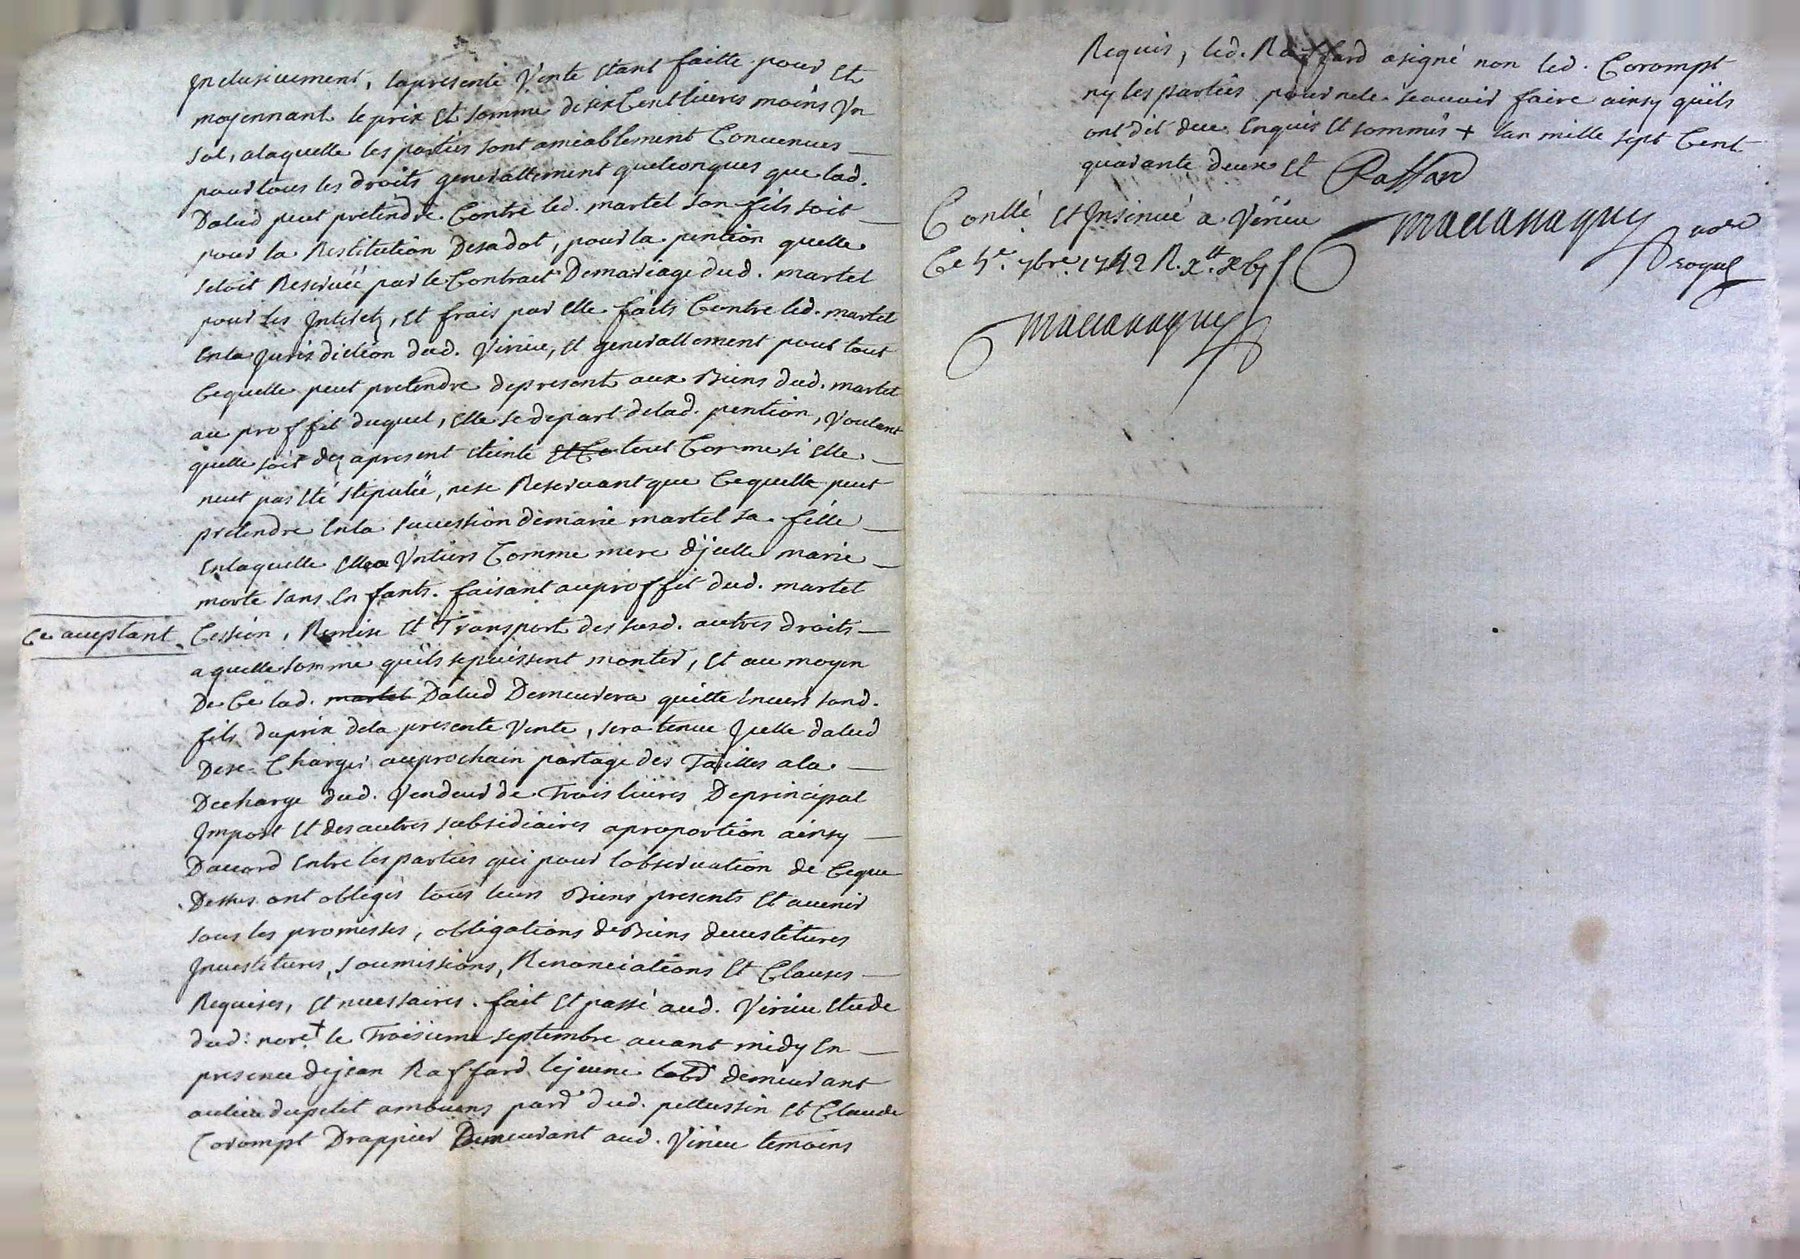 Inclusivement, la presente Vente étant faitte pour et
moyennant le prix et somme de six Cent livres moins Un
sol, a laquelle les parties sont amiablement Convenues
pour tous les droits generallement quelconques que lad.
Dalud peut pretendre Contre led. martel son fils soit
pour la Restitution De sa dot, pour la pention quelle
setoit Reservée par le Contract De mariage dud. martel
pour les Interetz, et frais par elle faits Contre led. martel
en la Jurisdiction dud. Virieu, et generallement pour tout
Cequelle peut pretendre de present aux Biens dud. martel
au proffit duquel, elle se depart de lad. pention, Voulant
quelle soit dez apresent éteinte et Ce tout Comme si elle
neut pas été stipulée, ne se Reservant que Cequelle peut
pretendre en la succession de marie martel sa fille
en laquelle elle a Un tiers Comme mere d'jcelle marie
morte sans enfants. faisant au proffit dud. martel
Ce acceptant
Cession, Remise et Transport des susd. autres droits
a quelle somme qu'ils se puissent monter, et au moyen
De Ce lad. martel Dalud Demeurera quitte envers sond.
fils du prix de la presente Vente, sera tenue Jcelle dalud
De se Charger au prochain partage des Tailles a la
Decharge dud. Vendeur de Trois livres De principal
Import et des autres subsidiaires a proportion ainsy
Daccord entre les parties qui pour lobservation de Ceque
Dessus ont obligés tous leurs Biens presents et avenir
sous les promesses, obligations de Biens devestitures
Investitures, soumissions, Renonciations et Clauses
Requises, et necessaires. fait et passé aud. Virieu étude
dud. nore + le Troisieme septembre avant midy en
presence de jean Raffard lejeune labr demeurant
au lieu du petit ambuens parr dud. pellussin et Claude
Corompt Drappier Demeurant aud. Virieu temoins
Requis, led. Raffard a signé non led. Corompt
ny les parties pour ne le scavoir faire ainsy qu'ils
ont dit de ce enquis et sommés + Lan mille sept Cent
quarante deux et Raffard
Conllé et Insinué a Virieu
Ce 4e. 7bre. 1742 R.